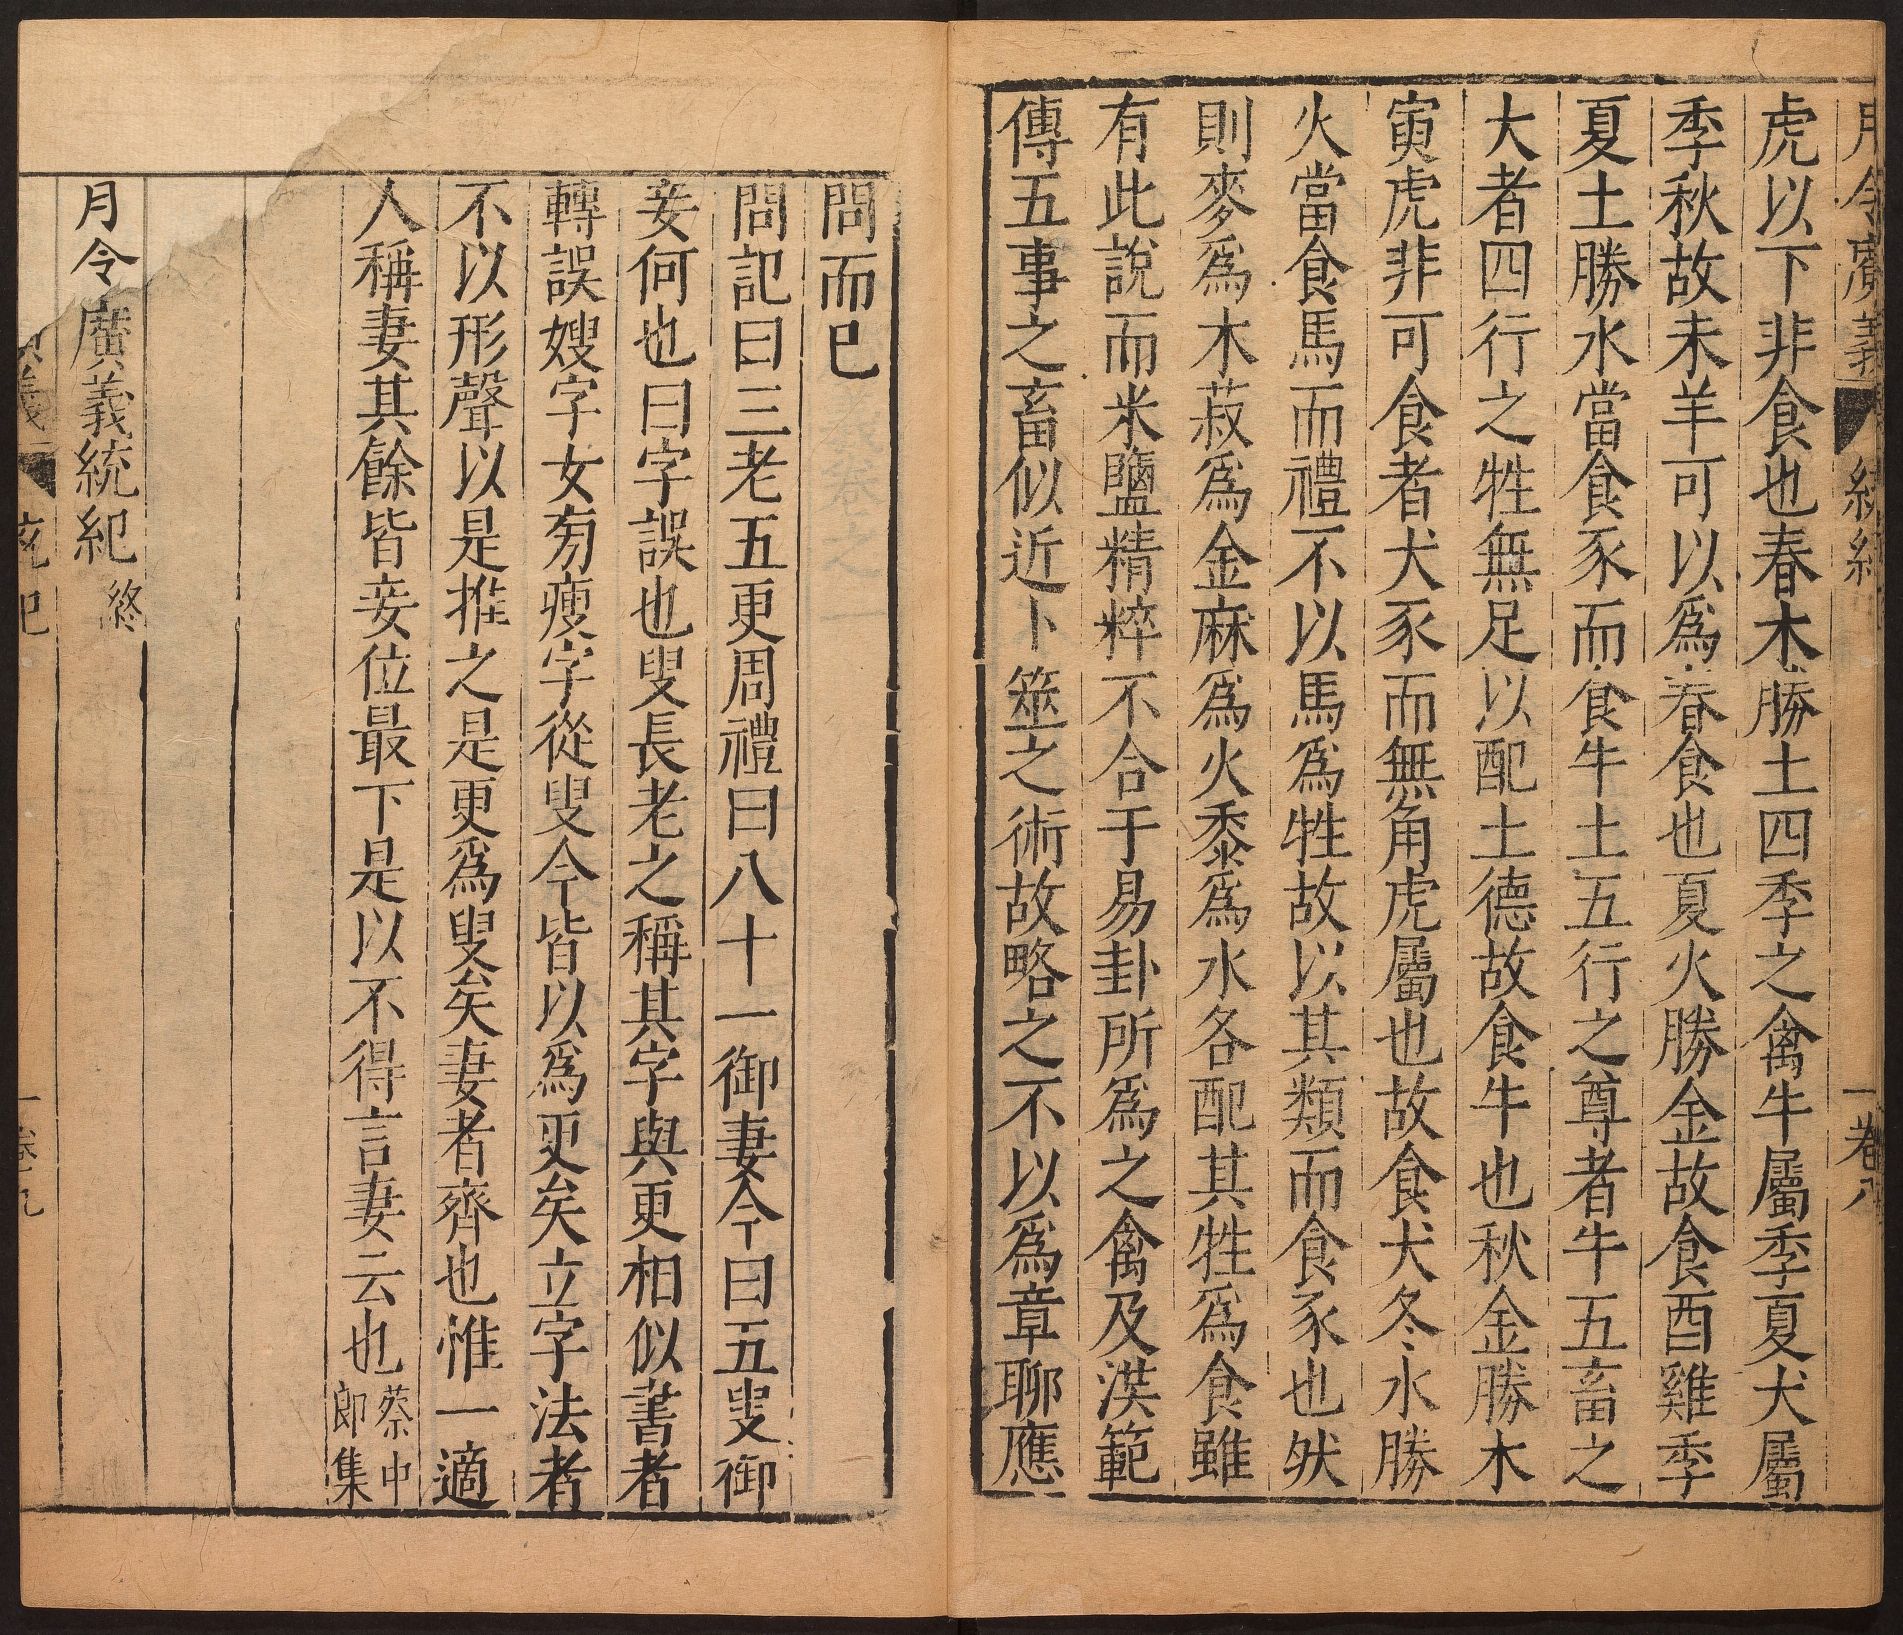 月令廣義 統紀 卷八
虎以下非食也春木勝土四季之禽牛屬季夏犬屬
季秋故未羊可以爲春食也夏火勝金故食酉雞季
夏土勝水當食豕而食牛土五行之尊者牛五畜之
大者四行之牲無足以配土德故食牛也秋金勝木
寅虎非可食者犬豕而無角虎屬也故食犬冬水勝
火當食馬而禮不以馬爲牲故以其類而食豕也然
則麥爲木菽爲金麻爲火黍爲水各配其牲爲食雖
有此說而米鹽精粹不合于易卦所爲之禽及洪範
傳五事之畜似近卜筮之術故略之不以爲章聊應
問而已
問記曰三老五更周禮曰八十一御妻今曰五叟御
妾何也曰字誤也叟長老之稱其字與更相似書者
轉誤嫂字女旁瘦字從叟今皆以爲更矣立字法者
不以形聲以是推之是更爲叟矣妻者齊也惟一適
人稱妻其餘皆妾位最下是以不得言妻云也 蔡中
郎集
月令廣義統紀 終
義 統紀